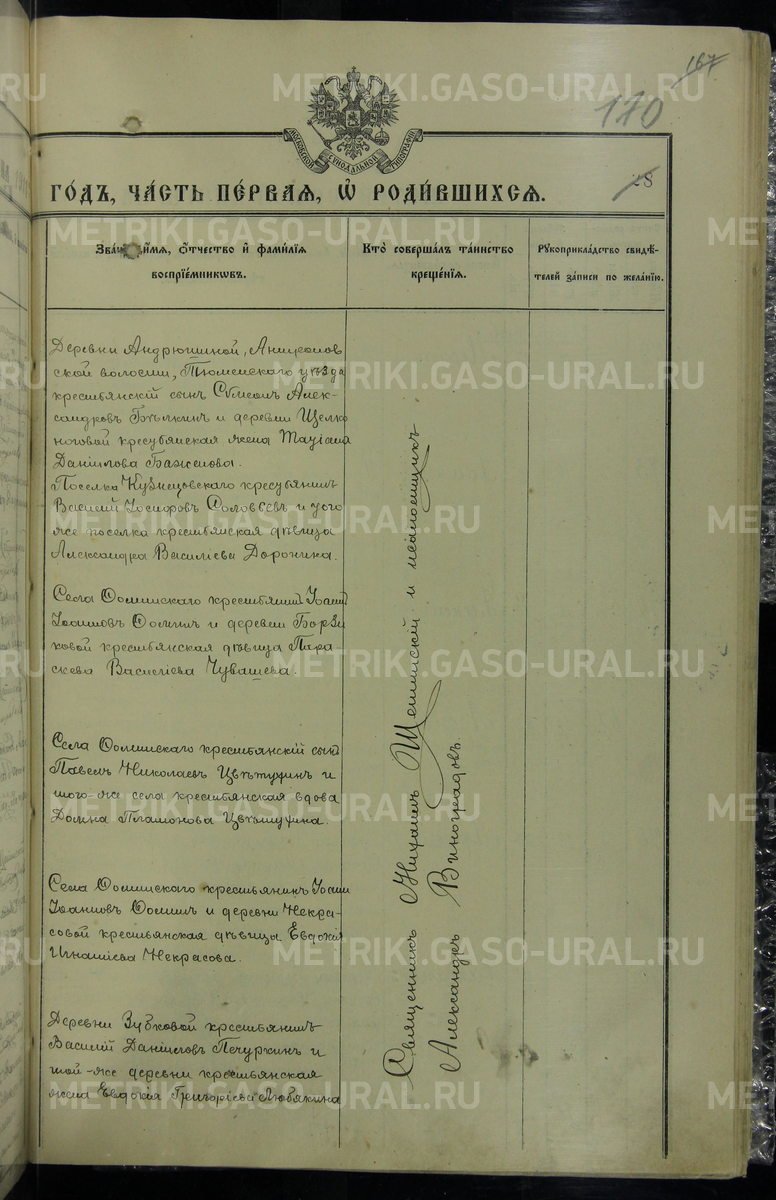 METRIKI.GASO-URAL.RU
167
170
МОСКОВСКОЙ СѴНОДАЛЬНОЙ ТИПОГРАФІИ
28
ГОДЪ, ЧАСТЬ ПЕРВАЯ, Ѡ РОДИВШИХСЯ.
Званіе, имя, отчество и фамилія
воспріемниковъ.
Кто совершалъ таинство
крещенія.
Рукоприкладство свидѣ-
телей записи по желанію.
Деревни Андрюшиной,
ской волости, Тюменскаго уѣзда
крестьянскій сынъ Сѵмеонъ Алек-
сандровъ Бѣлкинъ и деревни
крестьянская жена
Данилова Баженова.
Поселка Кузнецовскаго крестьянинъ
Василій Іосифовъ Соловьевъ и того
же поселка крестьянская дѣвица
Александра Василіева Доронина.
Села Фоминскаго крестьянинъ Іоаннъ
Іоанновъ Фоминъ и деревни
ковой крестьянская дѣвица Пара
скева Василіева Чувашева.
Села Фоминскаго крестьянскій сынъ
Павелъ Николаевъ и
того-же села крестьянская вдова
Домна Платонова
Села Фоминскаго крестьянинъ Іоаннъ
Іоанновъ Фоминъ и деревни Некра-
совой крестьянская дѣвица Евдокія
Игнатіева Некрасова.
Деревни Зубковой крестьянинъ
Василій Даніиловъ Печуркинъ и
той-же деревни крестьянская
жена Евдокія Григоріева Любякина
Священникъ Михаилъ и псаломщикъ
Александръ Виноградовъ.